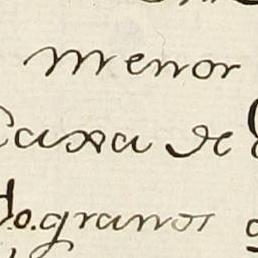 menor
Caxa de
d.o. granos